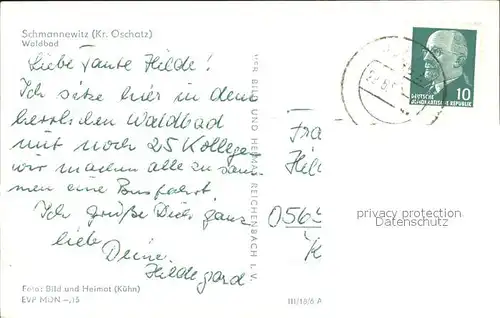 Schmannewitz (Kr. Oschatz)
Waldbad
Liebe Tante Hilde!
Ich sitze hier in dem
herrlichen Waldbad
mit noch 25 Kollegen
wir machen alle zusam-
men eine Busfahrt.
Ich grüße Dich ganz
lieb
Deine
Hildegard
Foto: Bild und Heimat (Kühn)
EVP MDN -,15
BILD UND HEIMAT REICHENBACH I. V.
III/18/6 A
10
DEUTSCHE
DEMOKRATISCHE REPUBLIK
Fra
Hil
0565
privacy protection
Datenschutz